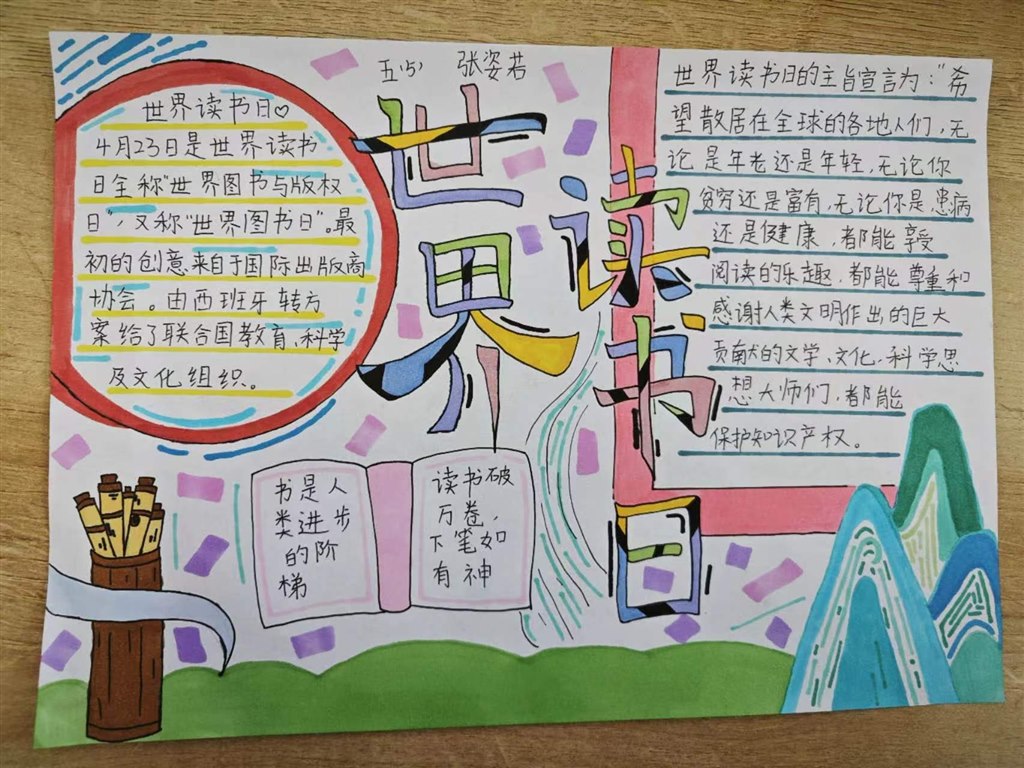 五(5) 张姿若
世界读书日
世界读书日♡
4月23日是世界读书
日全称"世界图书与版权
日",又称"世界图书日"。最
初的创意来自于国际出版商
协会。由西班牙转方
案给了联合国教育、科学
及文化组织。
世界读书日的主旨宣言为:"希
望散居在全球的各地人们,无
论是年老还是年轻,无论你
贫穷还是富有,无论你是患病
还是健康,都能享受
阅读的乐趣,都能尊重和
感谢人类文明作出的巨大
贡献的文学、文化、科学思
想大师们,都能
保护知识产权。
书是人
类进步
的阶
梯
读书破
万卷,
下笔如
有神